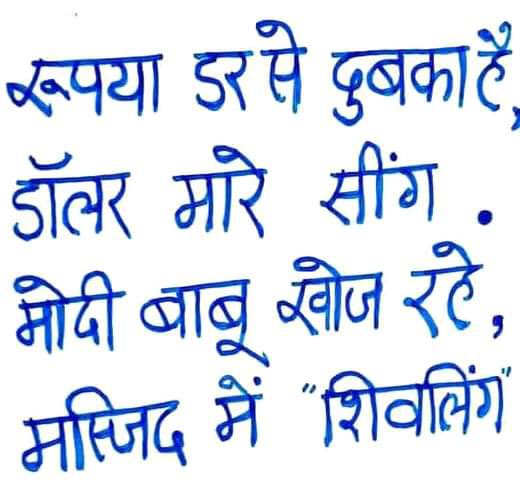 रूपया डर से दुबका है,
डॉलर मारे सींग .
मोदी बाबू खोज रहे,
मस्जिद में "शिवलिंग"